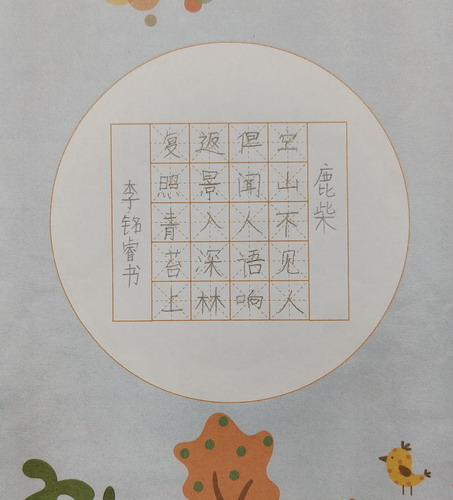 鹿柴
空山不见人
但闻人语响
返景入深林
复照青苔上
李铭睿书